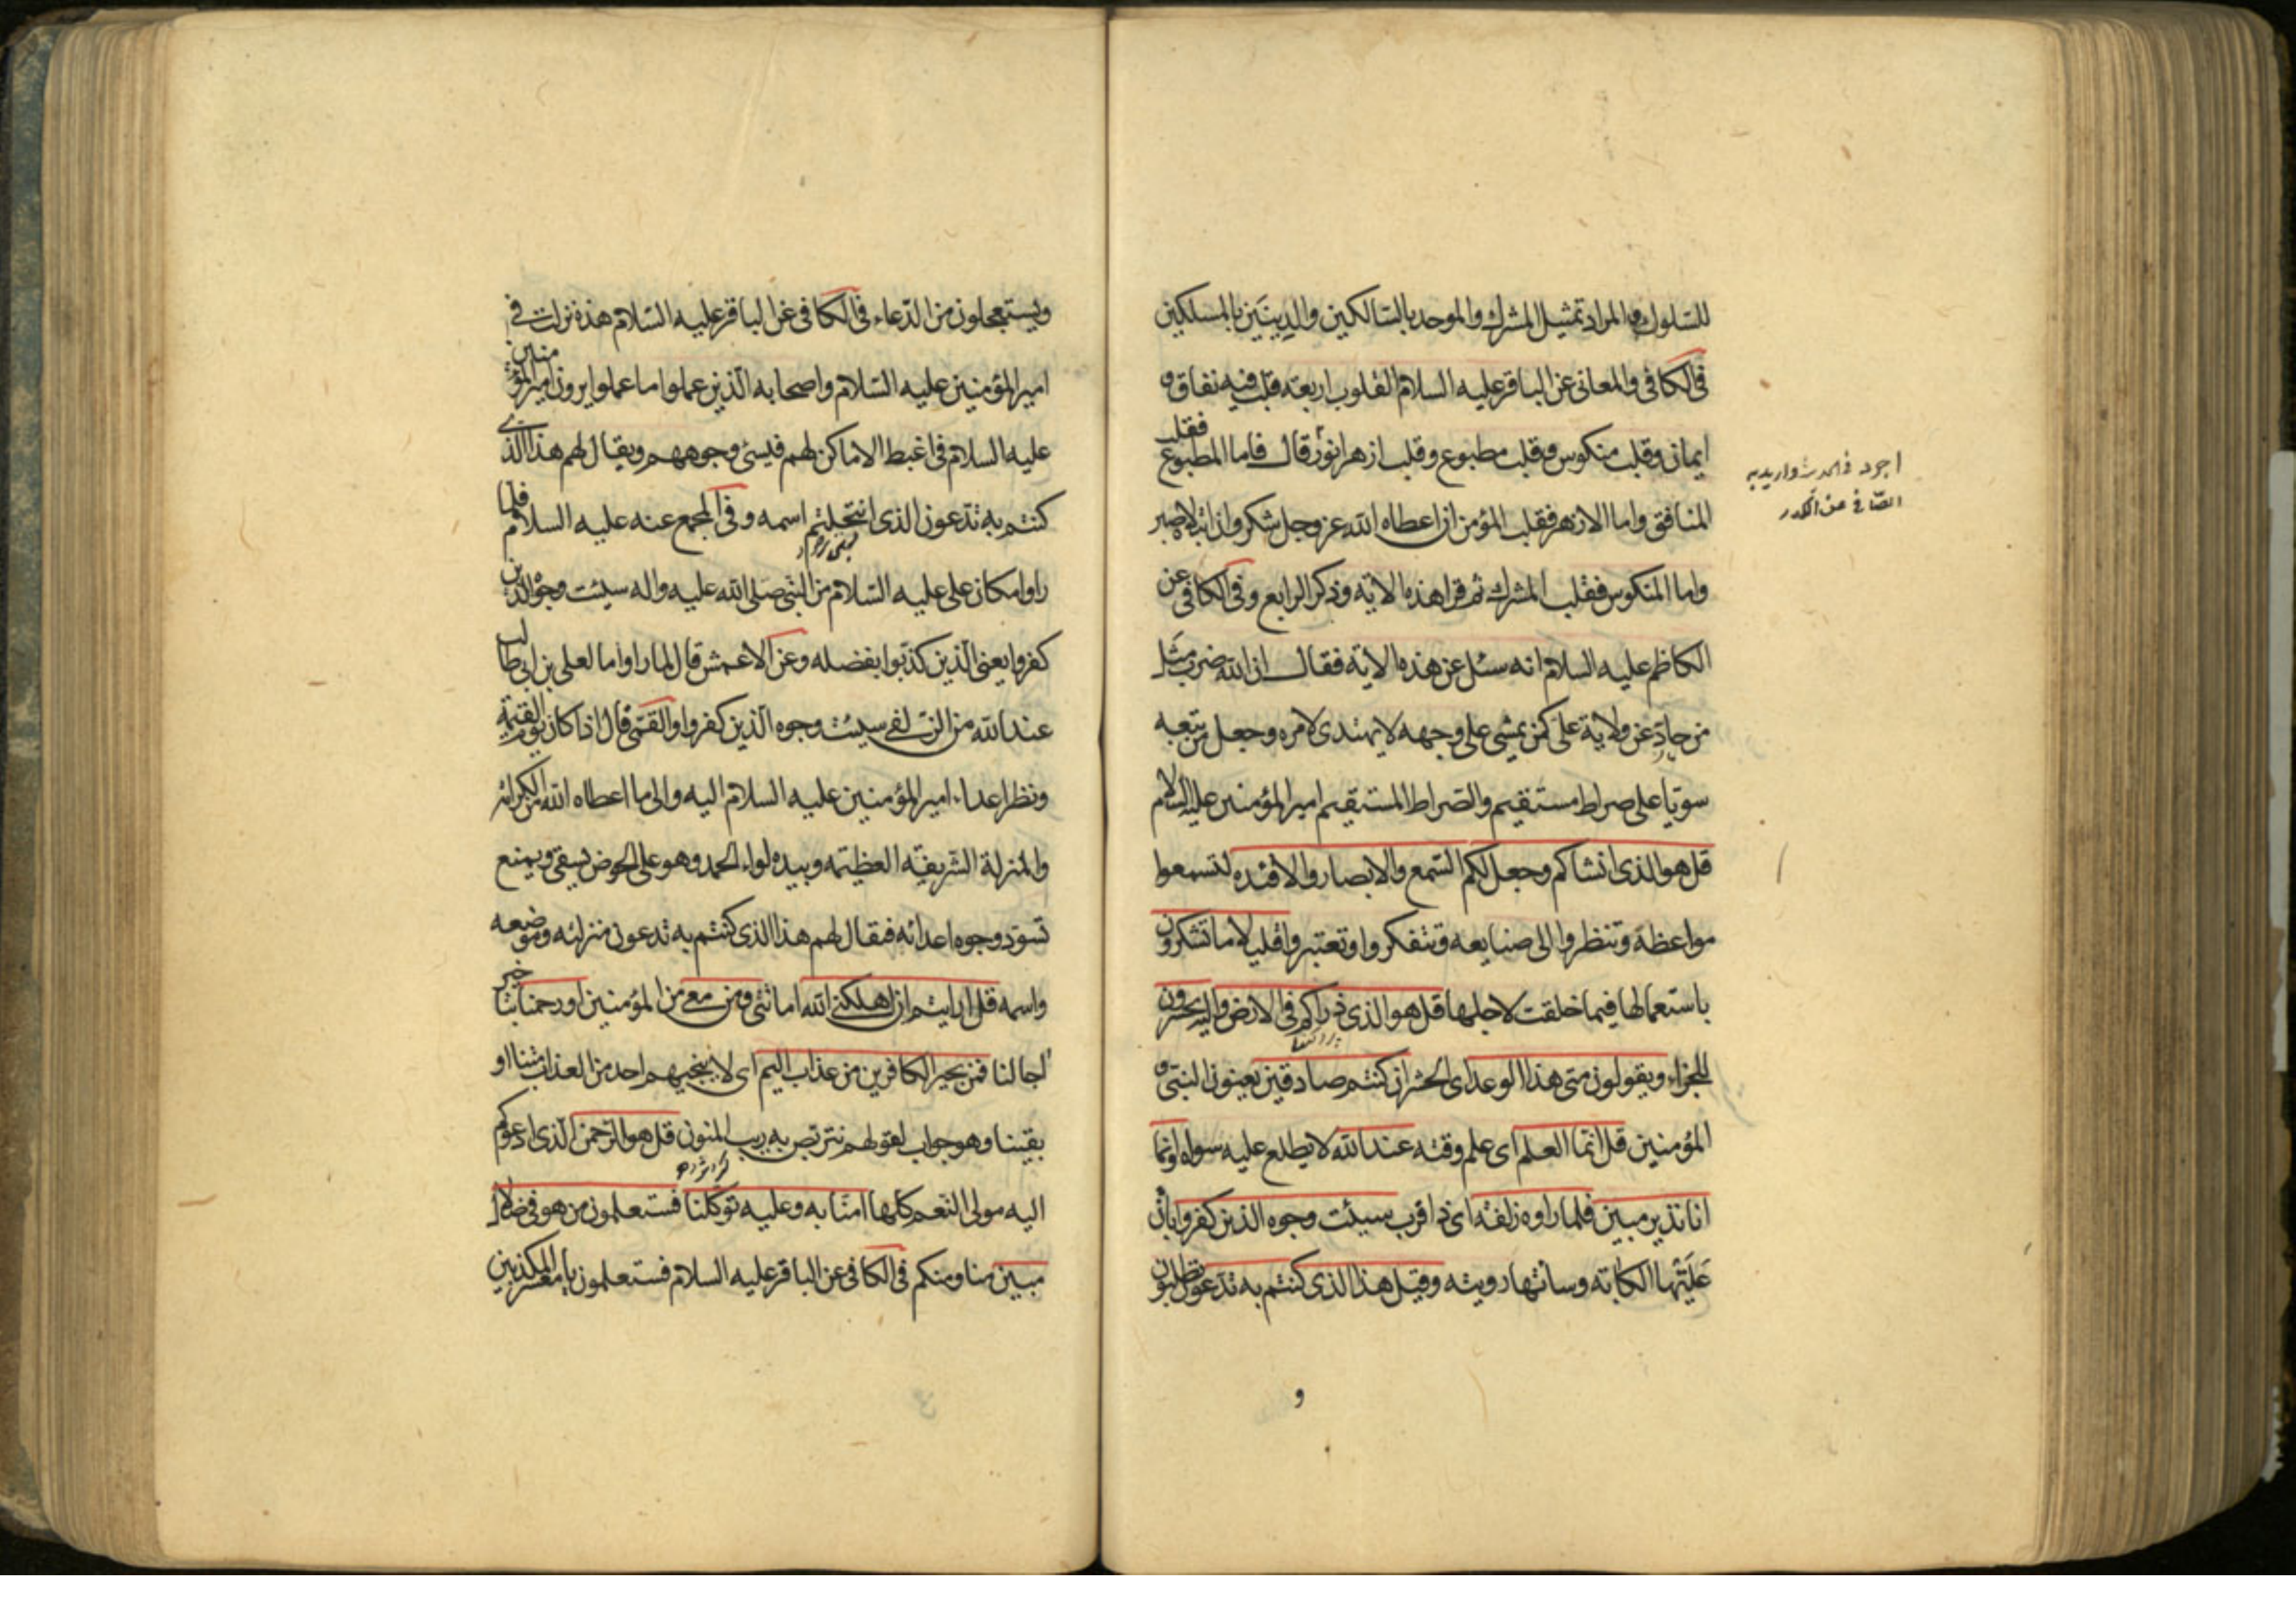 للسلوك والمراد تمثيل المشرك والموحد بالسالكين والدينين بالمسلكين
فى الكافى والمعانى عن الباقر عليه السلام القلوب اربعة قلب فيه نفاق و
ايمان وقلب منكوس وقلب مطبوع وقلب ازهر انور قال فاما المطبوع فقلب
المنافق واما الازهر فقلب المؤمن ان اعطاه الله عز وجل شكر وان ابتلاه صبر
واما المنكوس فقلب المشرك ثم قرا هذه الاية وذكر الرابع وفى الكافى عن
الكاظم عليه السلام انه سئل عن هذه الاية فقال ان الله ضرب مثل
من حاد عن ولاية على كمن يمشى على وجهه لا يهتدى لامره وجعل من تبعه
سويا على صراط مستقيم والصراط المستقيم امير المؤمنين عليه السلام
قل هو الذى انشاكم وجعل لكم السمع والابصار والافئده لتسمعوا
مواعظه وتنظروا الى صنايعه وتتفكروا وتعتبروا قليلا ما تشكرون
باستعمالها فيما خلقت لاجلها قل هو الذى ذراكم فى الارض واليه تحشرون
للجزاء ويقولون متى هذا الوعد اى الحشر ان كنتم صادقين يعنون النبى و
المؤمنين قل انما العلم اى علم وقته عند الله لا يطلع عليه سواه وانما
انا نذير مبين فلما راوه زلفة اى ذا قرب سيئت وجوه الذين كفروا بان
علتها الكابة وساتها رويته وقيل هذا الذى كنتم به تدعون تطلبون
و
اجرد فى الحديث واريد به
الصافى عن الكدر
ويستعجلون من الدعاء فى الكافى عن الباقر عليه السلام هذه نزلت فى
امير المؤمنين عليه السلام واصحابه الذين عملوا ما عملوا يرون امير المؤمنين
عليه السلام فى اغبط الاماكن لهم فيسئ وجوههم ويقال لهم هذا الذى
كنتم به تدعون الذى انتحلتم اسمه وفى المجمع عنه عليه السلام فلما
راوا مكان على عليه السلام من النبى صلى الله عليه واله سيئت وجوه الذين
كفروا يعنى الذين كذبوا بفضله وعن الاعمش قال لما راوا ما لعلى بن ابى طالب
عند الله من الزلفى سيئت وجوه الذين كفروا والقمى قال اذا كان يوم القيمة
ونظر اعداء امير المؤمنين عليه السلام اليه والى ما اعطاه الله من الكرامة
والمنزلة الشريفة العظيمة وبيده لواء الحمد وهو على الحوض يسقى ويمنع
تسود وجوه اعدائه فيقال لهم هذا الذى كنتم به تدعون منزلته وموضعه
واسمه قل ارايتم ان اهلكنى الله اماتنى ومن معى من المؤمنين او رحمنا بتاخير
اجالنا فمن يجير الكافرين من عذاب اليم اى لا ينجيهم احد من العذاب متنا او
بقينا وهو جواب لقولهم نتربص به ريب المنون قل هو الرحمن الذى ادعوكم
اليه مولى النعم كلها امنا به وعليه توكلنا فستعلمون من هو فى ضلال
مبين منا ومنكم فى الكافى عن الباقر عليه السلام فستعلمون يا معشر المكذبين